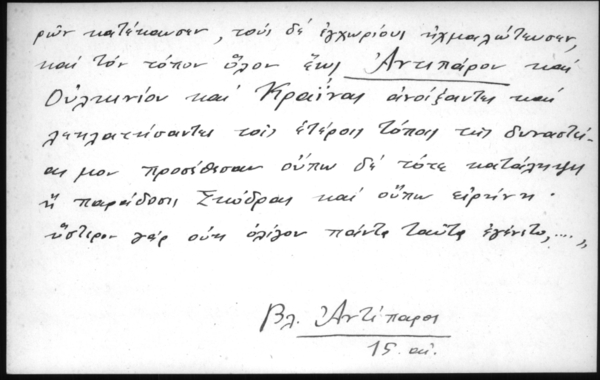 ρῶν κατέκαυσεν, τοὺς δέ ἐγχωρίους ᾐχμαλώτευσεν,
καί τόν τόπον ὅλον ἕως Ἀντιπάρον καί
Οὐλκινίου καί Κραΐνας ἀνοίξαντες καί
λεηλατήσαντες τοῖς ἑτέροις τόποις τῆς δυναστεί-
ας μου προσέθεσαν οὔπω δέ τότε κατάληψις
ἤ παράδοσις Σκόδρας καί οὔπω εἰρήνη.
ὕστερον γάρ οὐκ ὀλίγον πάντα ταῦτα ἐγένετο, ....,,
Βλ. Ἀντίπαροι
15. αἰ.